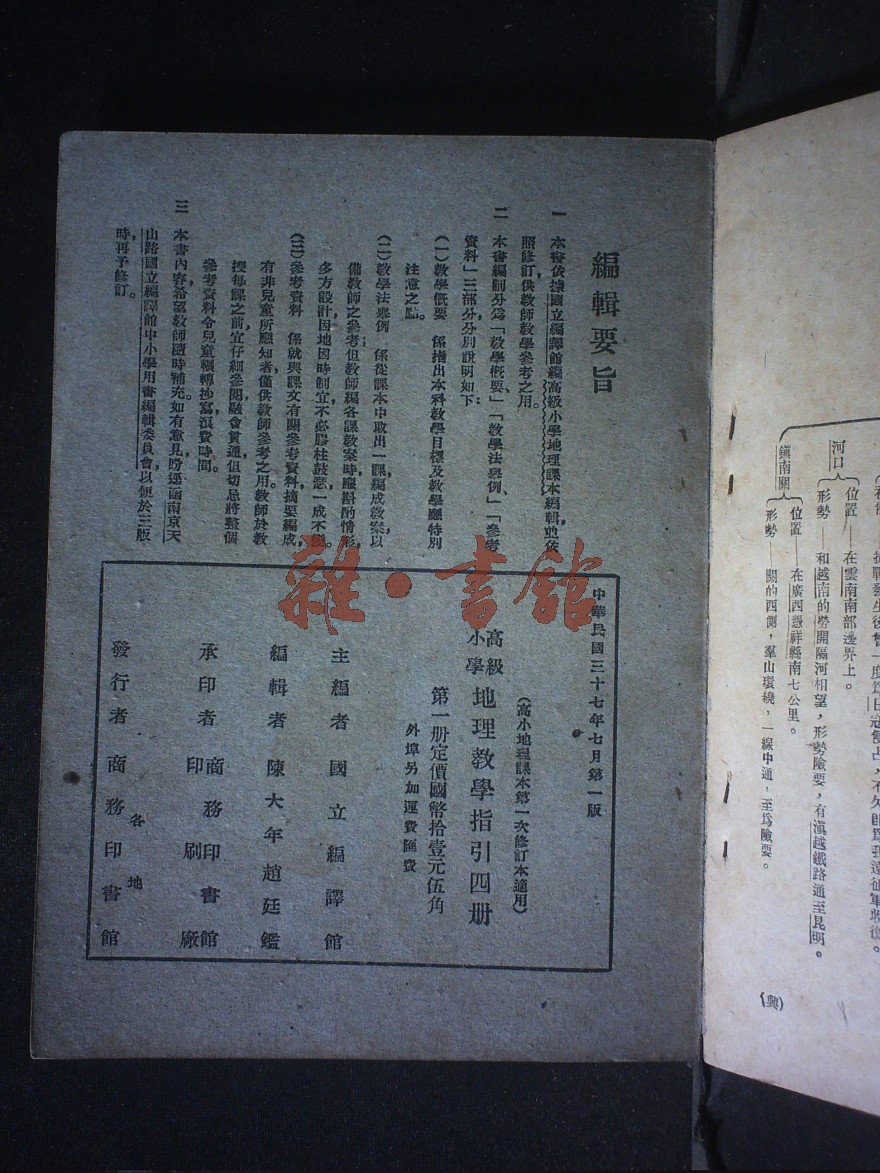 編輯要旨
一 本書依據國立編譯館編高級小學地理課本編輯，並依
照修訂，供教師教學參考之用。
二 本書編制分爲「教學概要」、「教學法舉例」、「參考
資料」三部分分別說明如下：
（一）教學概要 係指出本科教學目標及教學應特別
注意之點。
（二）教學法舉例 係從課本中取出一課，編成教案，以
備教師之參考；但教師編各課教案時，應斟酌情形，
多方設計，因地因時制宜，不必膠柱鼓瑟，一成不變。
（三）參考資料 係就與課文有關參考資料，摘要編成，
有非兒童所應知者，僅供教師參考之用。教師於教
授每課之前，宜仔細參閱，融會貫通，但切忌將整個
參考資料令兒童輾轉抄寫，浪費時間。
三 本書內容希望教師隨時補充。如有意見，盼逕函南京天
山路國立編譯館中小學用書編輯委員會，以便於三版
時，再予修訂。
中華民國三十七年七月第一版
（高小地理課本第一次修訂本適用）
高級小學地理教學指引四册
第一册定價國幣拾壹元伍角
外埠另加運費匯費
主編者 國立編譯館
編輯者 陳大年 趙廷鑑
承印者 商務印書館印刷廠
發行者 各地商務印書館
雜·書館
抗戰發生後曾一度爲日寇侵占，不久即爲我遠征軍收復。
河口
位置——在雲南南部邊界上。
形勢——和越南的勞開隔河相望，形勢險要，有滇越鐵路通至昆明。
鎭南關
位置——在廣西憑祥縣南七公里。
形勢——關的西側，羣山環繞，一線中通，至爲險要。
（興）